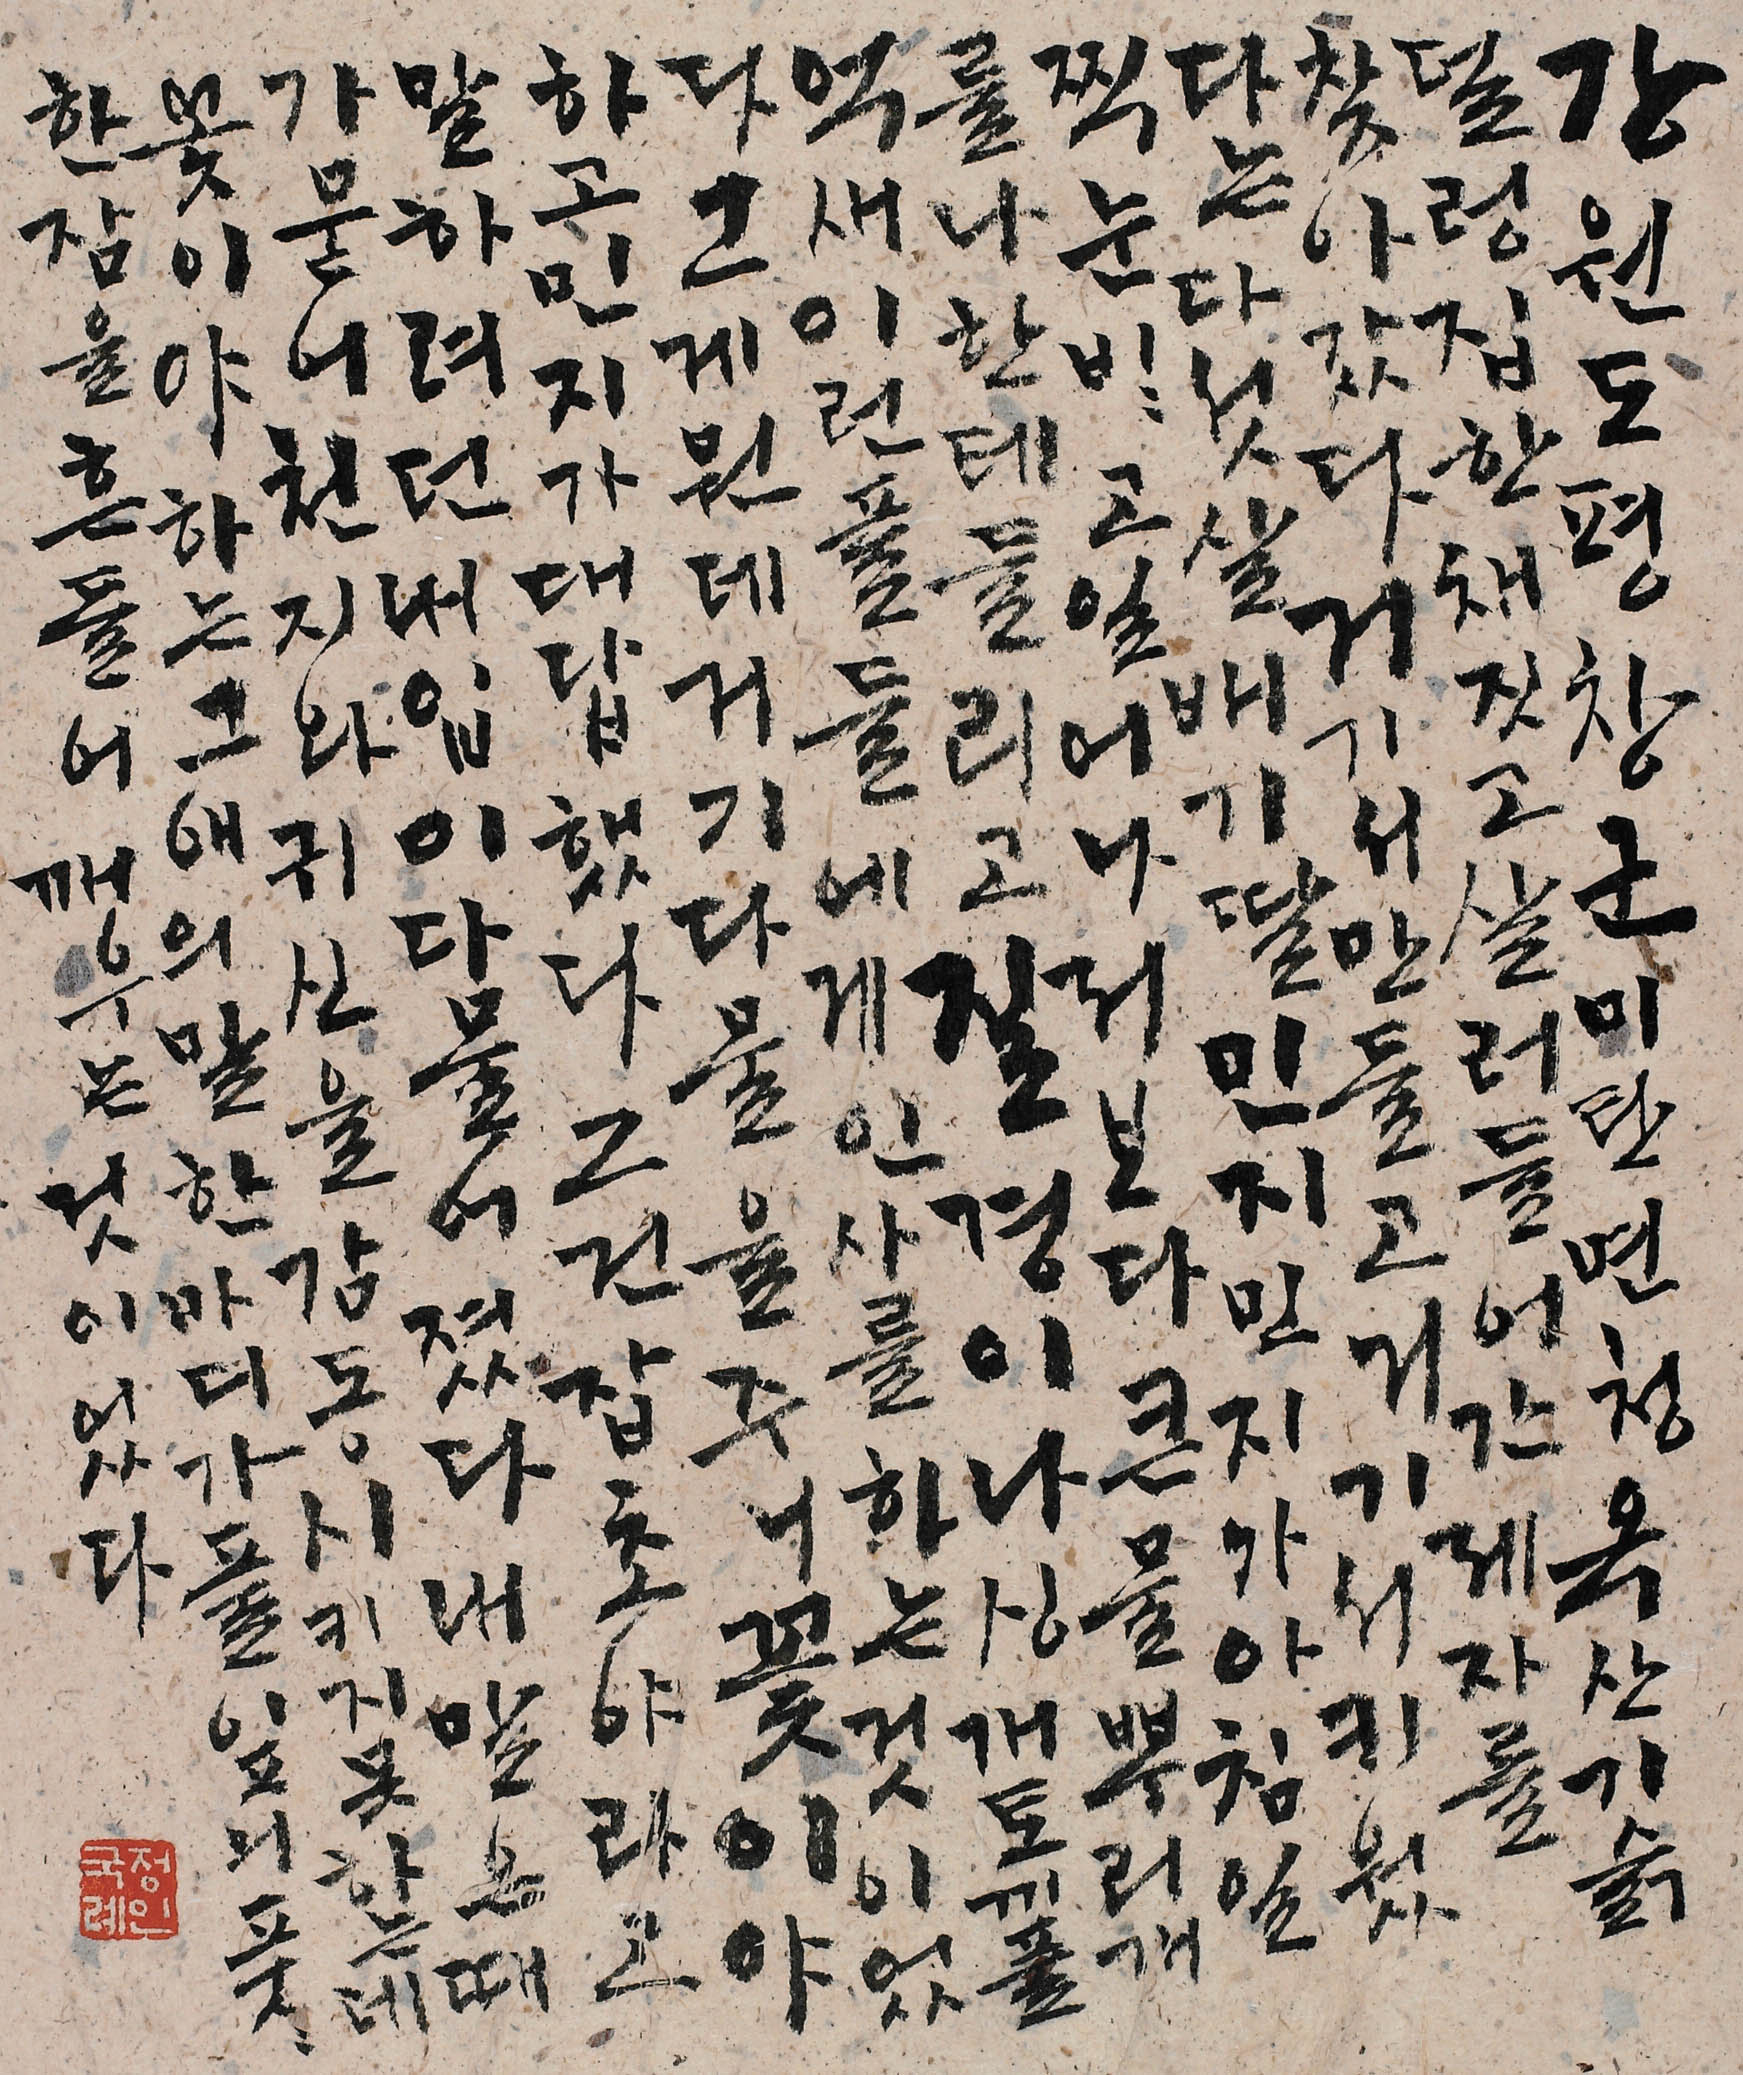 강원도평창군미탄면청옥산기슭
덜렁집한채짓고살러들어간제자를
찾아갔다거기서만들고거기서키웠
다는다섯살배기딸민지민지가아침일
찍눈비:고일어나저보다큰물뿌리개
를나한테들리고질경이나싱개토끼풀
억새이런풀들에게인사를하는것이었
다그게뭔데거기다물을주니꽃이야
하고민지가대답했다그건잡초야라고
말하려던내입이다물어졌다내말은때
가묻어천지와귀신을감동시키지못하는데
꽃이야하는그애의말한마디가풀잎의풋:
한잠을흔들어깨우는것이었다
정인
국례